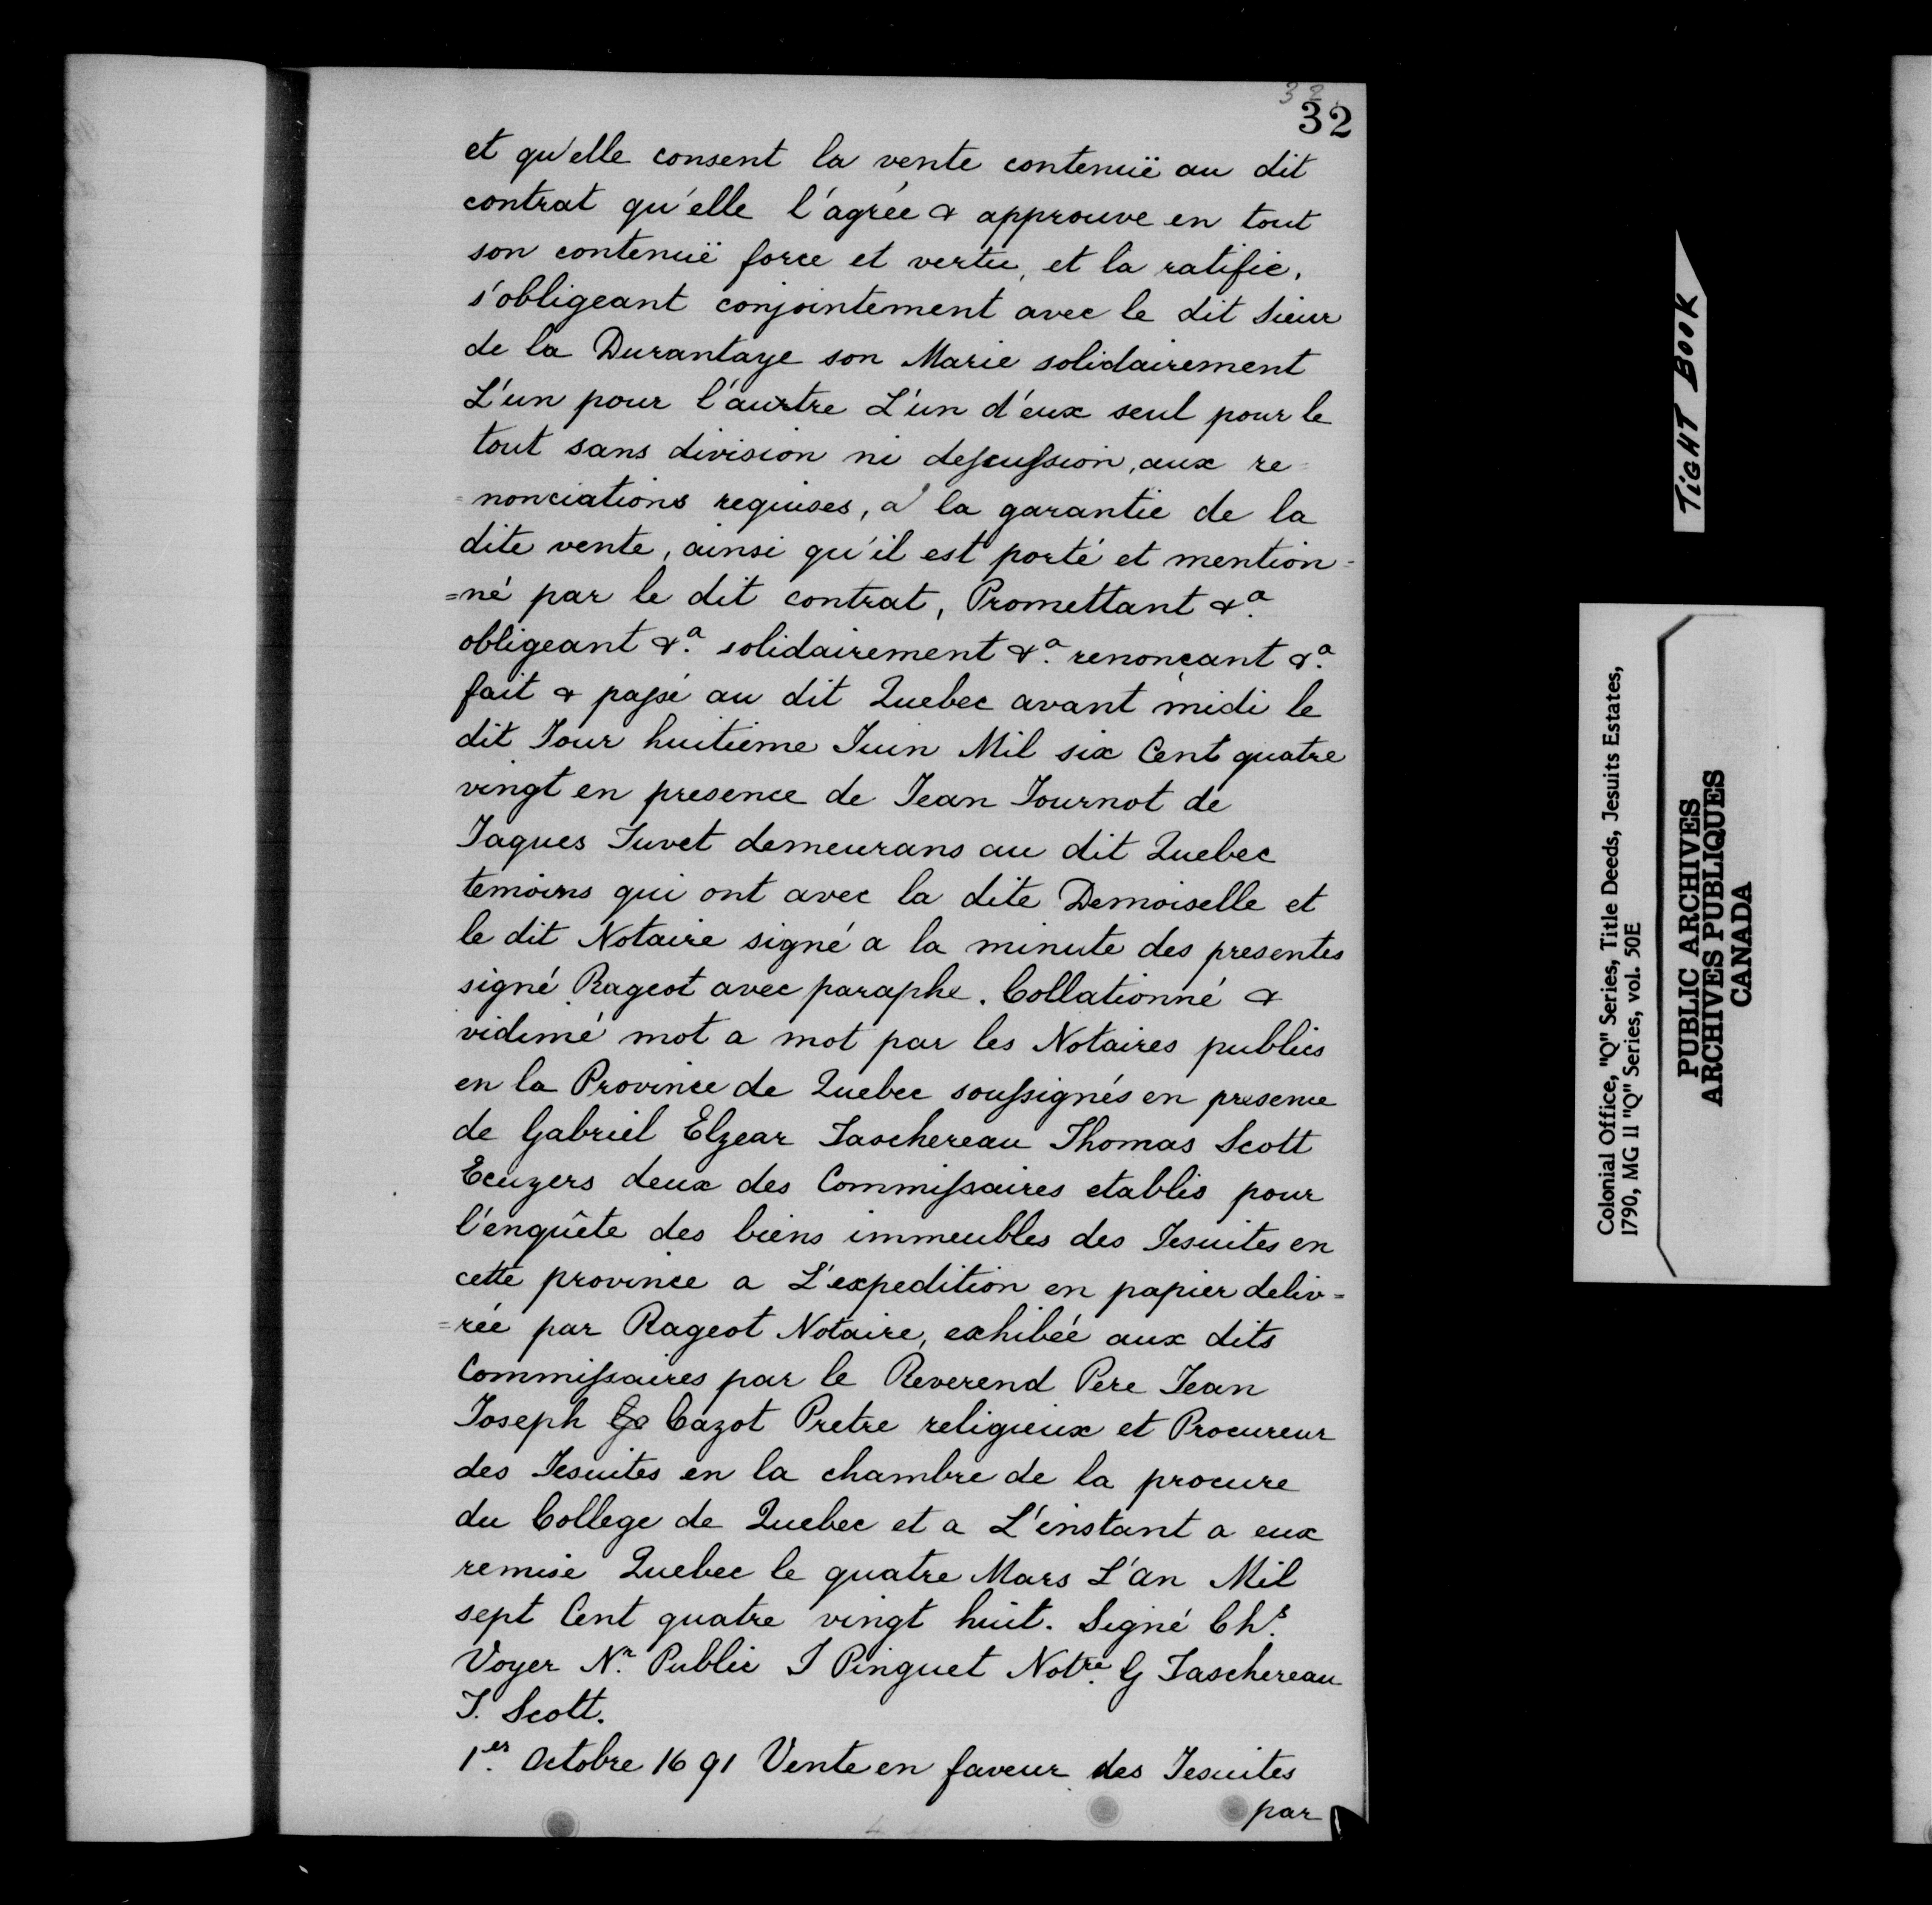 32
32
et qu'elle consent la vente contenuë au dit
contrat qu'elle l'agrée & approuve en tout
son contenuë force et vertu, et la ratifie,
s'obligeant conjointement avec le dit Sieur
de la Durantaye son Marie solidairement
L'un pour l'autre L'un d'eux seul pour le
tout sans division ni descussion, aux re=
=nonciations requises, a la garantie de la
dite vente, ainsi qu'il est porté et mention=
=né par le dit contrat, Promettant &a.
obligeant &a. solidairement &a. renonçant &a.
fait & passé au dit Quebec avant midi le
dit Jour huitieme Juin Mil six Cent quatre
vingt en presence de Jean Journot de
Jaques Juvet demeurans au dit Quebec
temoins qui ont avec la dite Demoiselle et
le dit Notaire signé a la minute des presentes
signé Rageot avec paraphe. Collationné &
vidimé mot a mot par les Notaires publics
en la Province de Quebec soussignés en presence
de Gabriel Elzear Taschereau Thomas Scott
Ecuyers deux des Commissaires etablis pour
l'enquête des biens immeubles des Jesuites en
cette province a L'expedition en papier deliv=
=rée par Rageot Notaire, exhibée aux dits
Commissaires par le Reverend Pere Jean
Joseph Cazot Pretre religieux et Procureur
des Jesuites en la chambre de la procure
du College de Quebec et a L'instant a eux
remise Quebec le quatre Mars L'an Mil
sept Cent quatre vingt huit. Signé Chs.
Voyer Nr. Public J Pinguet Notre. G Taschereau
T. Scott.
1er. Octobre 1691 Vente en faveur des Jesuites
par
TIGHT BOOK
Colonial Office, "Q" Series, Title Deeds, Jesuits Estates,
1790, MG 11 "Q" Series, vol. 50E
PUBLIC ARCHIVES
ARCHIVES PUBLIQUES
CANADA